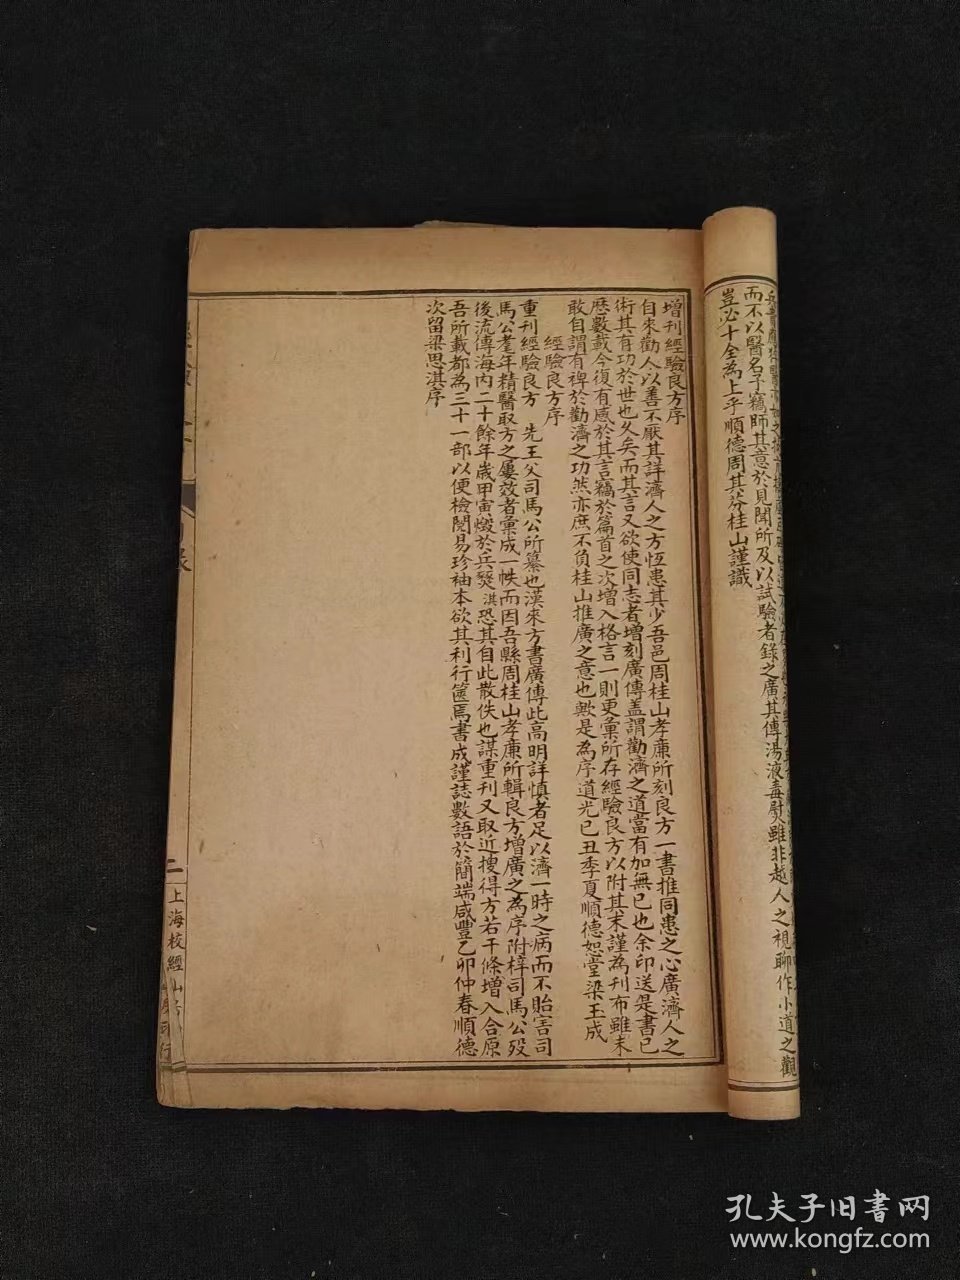 而不以醫名予竊師其意於見聞所及以試驗者錄之廣其傳湯液毒熨雖非越人之視聊作小道之觀
豈必十全為上乎順德周其芬桂山謹識
增刊經驗良方序
自來勸人以善不厭其詳濟人之方恆患其少吾邑周桂山孝廉所刻良方一書推同患之心廣濟人之
術其有功於世也久矣而其言又欲使同志者增刻廣傳蓋謂勸濟之道當有加無已也余印送是書已
歷數載今復有感於其言竊於篇首之次增入格言一則更彙所存經驗良方以附其末謹為刊布雖未
敢自謂有裨於勸濟之功然亦庶不負桂山推廣之意也歟是為序道光己丑季夏順德恕堂梁玉成
經驗良方序
重刊經驗良方 先王父司馬公所纂也漢來方書廣傳此高明詳慎者足以濟一時之病而不貽害司
馬公耄年精醫取方之屢效者彙成一帙而因吾縣周桂山孝廉所輯良方增廣之為序附梓司馬公歿
後流傳海內二十餘年歲甲寅燬於兵燹淇恐其自此散佚也謀重刊又取近搜得方若干條增入合原
吾所載都為三十一部以便檢閱易珍袖本欲其利行篋焉書成謹誌數語於簡端咸豐乙卯仲春順德
次留梁思淇序
二
上海校經山房
行
孔夫子旧书网
www.kongfz.com